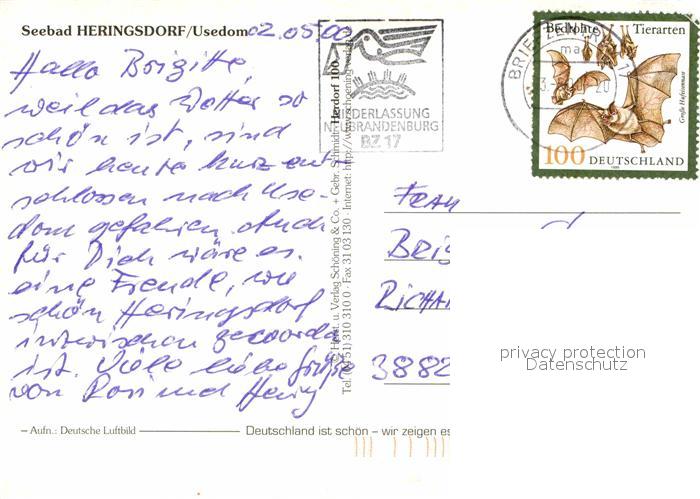 Seebad HERINGSDORF/Usedom
02.05.00
Hallo Brigitte,
weil das Wetter so
schön ist, sind
wir heute kurz ent-
schlossen nach Use-
dom gefahren. Auch
für Dich wäre es
eine Freude, wie
schön Heringsdorf
inzwischen geworden
ist. Viele liebe Grüße
von Rosi und
– Aufn.: Deutsche Luftbild
Deutschland ist schön – wir zeigen es
Herst. u. Verlag Schöning & Co. + Gebr. Schmidt
Tel. (04 51) 310 310 0 · Fax 31 03 130 · Internet: http://www.schoening-verlag
Herdorf 100
NIEDERLASSUNG
NEUBRANDENBURG
BZ 17
BRIEFZENTRUM 17
ma
Bedrohte Tierarten
Große Hufeisennase
100 DEUTSCHLAND
FRAU
BRIG
RICHA
3882
privacy protection
Datenschutz